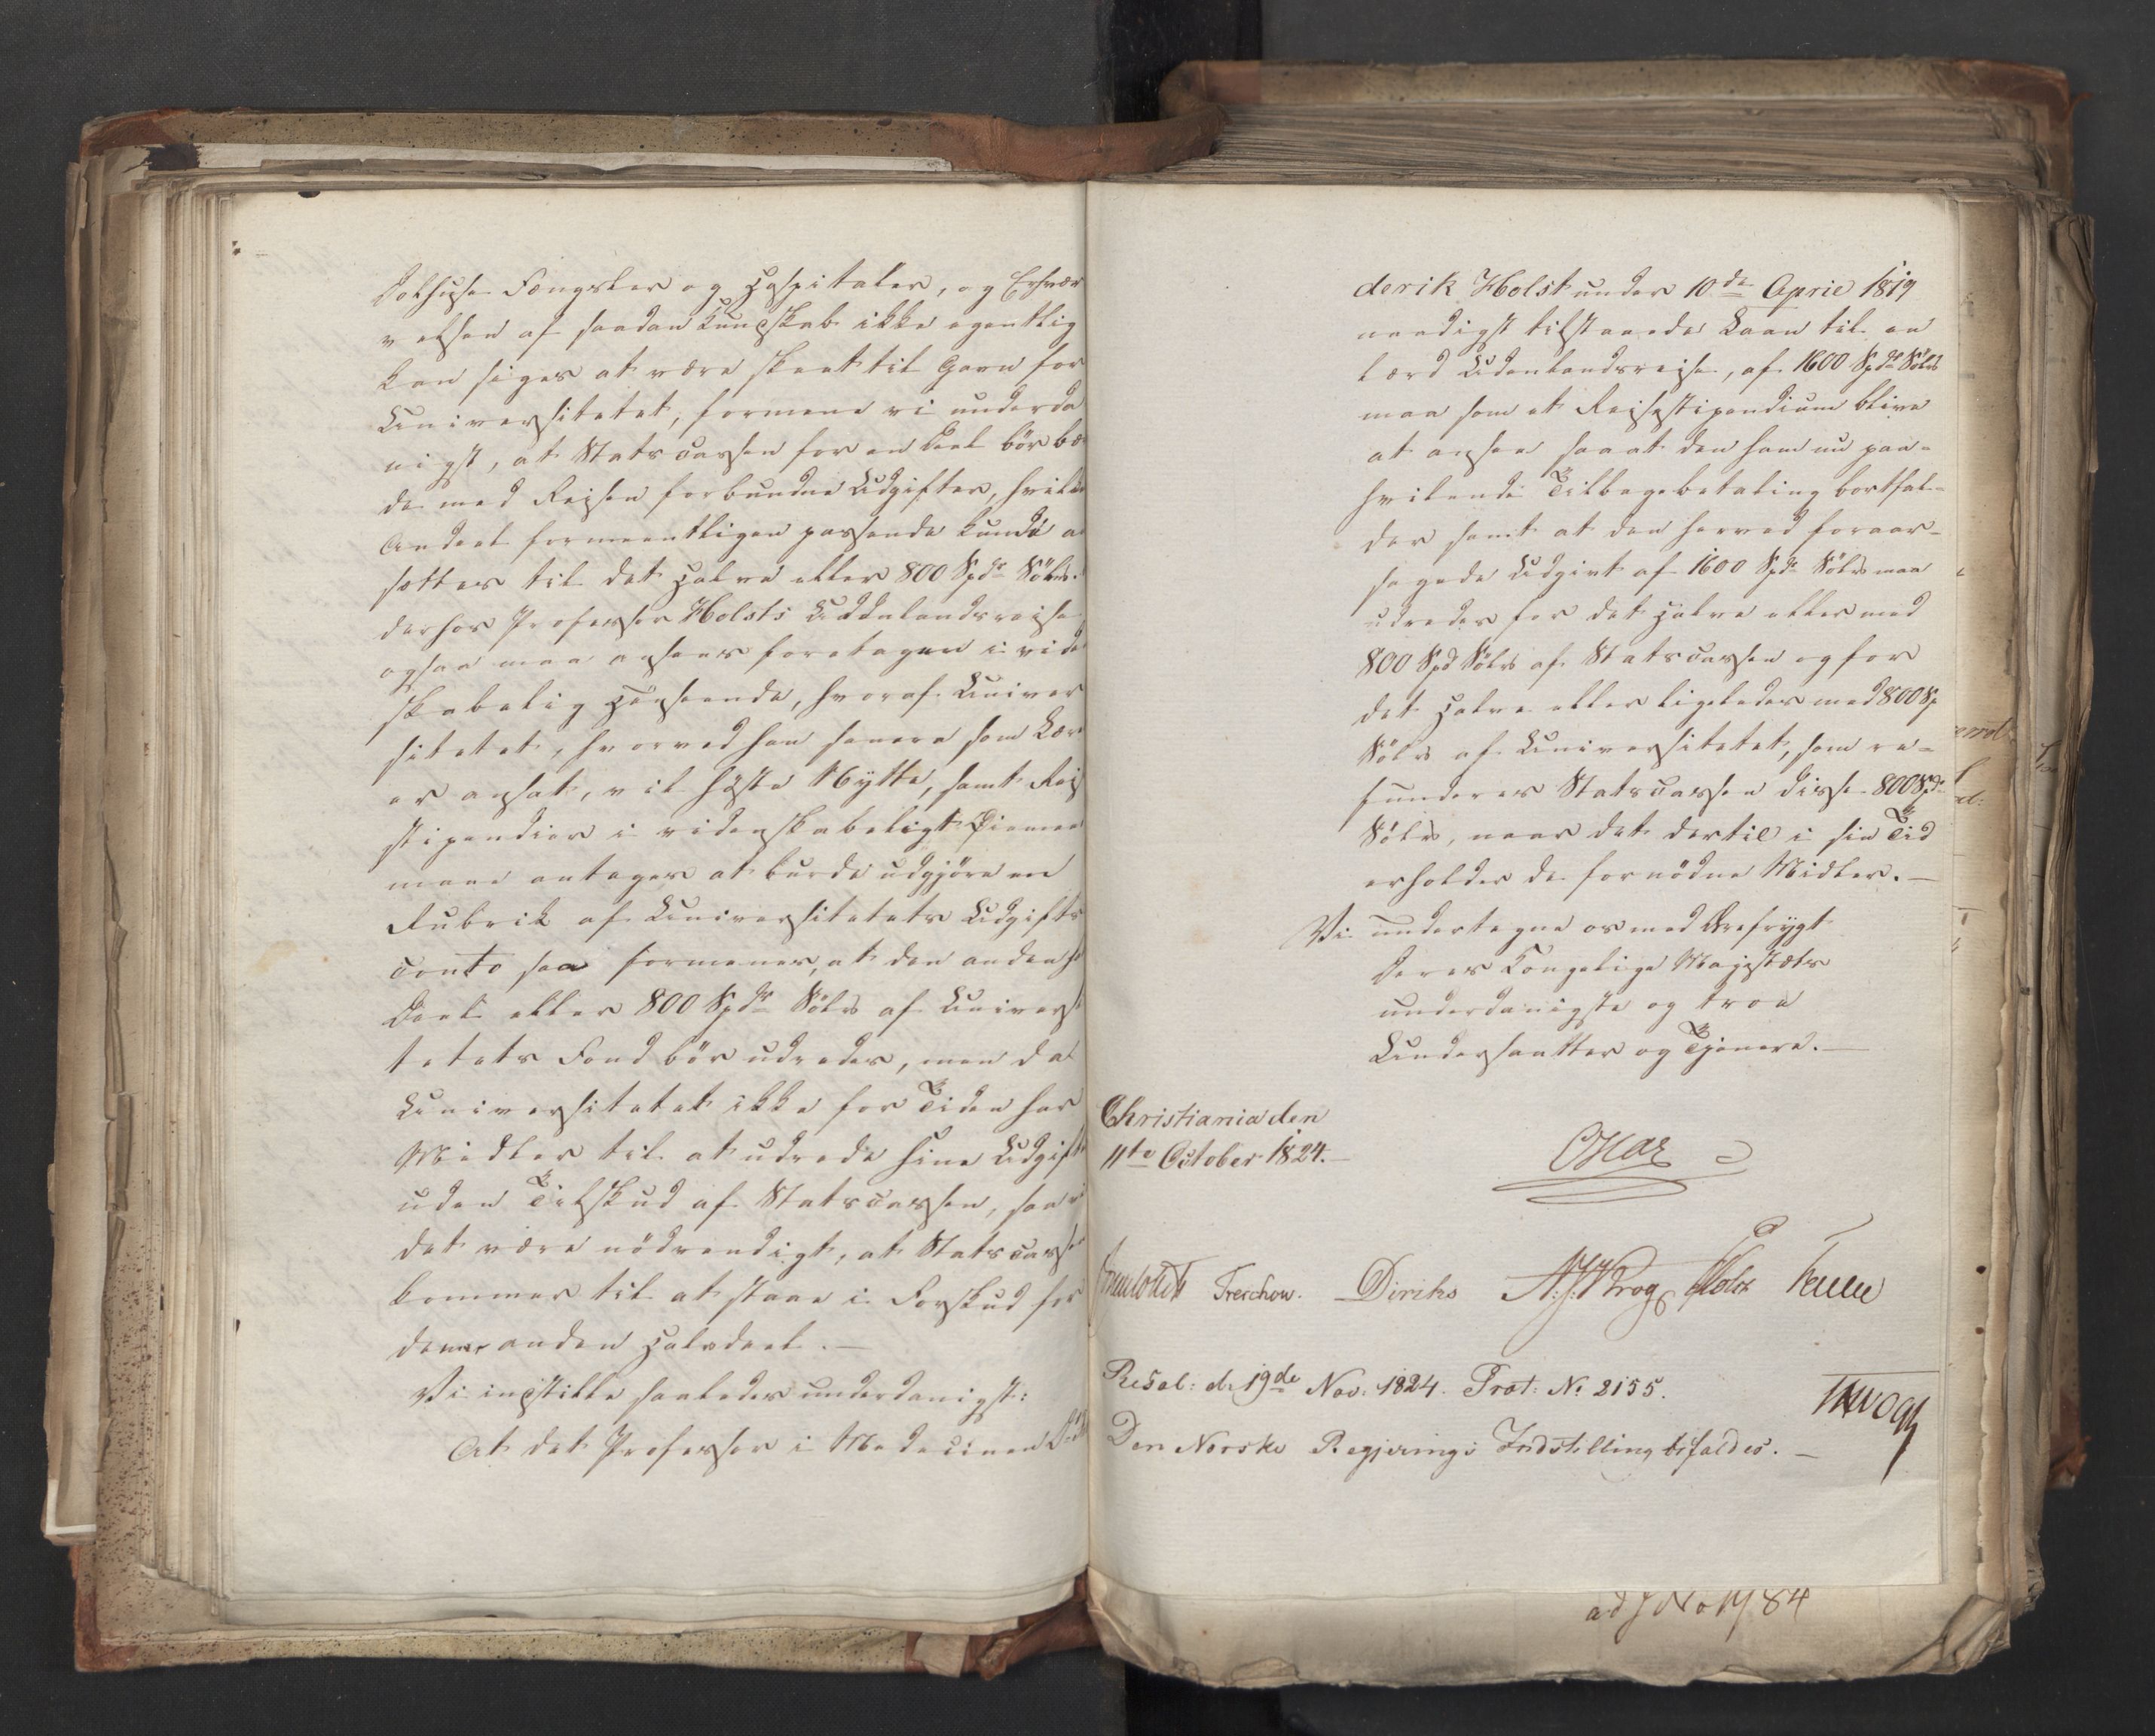 Dolhuse Fængsler og Hospitaler, og Erhvær
velsen af saadan Kundskab ikke egentlig
kan siges at være skeet til Gavn for
Universitetet, formene vi underda
nigst, at Statscassen for en Deel bör bæ
de med Reisen forbundne Udgifter, hvilken
Andeel formeentligen passende kunde an
sættes til det Halve eller 800 Spdr Sölv.
derhos Professor Holsts Uddenlandsreise
ogsaa maa ansees foretagen i viden
skabelig Henseende, hvoraf Univer
sitetet, hvorved han senere som Lær
er ansat, vil høste Nytte, samt Reise
stipendier i videnskabeligt Øiemed
maae antages at burde udgjöre en
Rubrik af Universitetets Udgifts
Conto saa formenes, at den anden
Deel eller 800 Spdr Sölv af Universi
tetets Fond bör udredes, men da
Universitetet ikke for Tiden har
Midler til at udrede sine Udgifter
uden Tilskud af Statscassen, saa vil
det være nödvendigt, at Statscassen
kommer til at staae i Forskud for
denne anden Halvdeel.—
Vi indstille saaledes underdanigst:
At det Professor i Medecinen
derik Holst under 10de April 1819
naadigst tilstaaede Laan til en
lærd Udenlandsreise, af 1600 Spdr Sölv
maa som et Reisestipendium blive
at ansee saaat den ham nu paa-
hvilende Tilbagebetaling bortfal-
der samt at den herved foraar-
sagede Udgivt af 1600 Spdr Sölv maa
udredes for det Halve eller med
800 Spd Sölv af Statscassen og for
det Halve eller ligeledes med 800 Sp
Sölv af Universitetet, som re-
funderer Statscassen disse 800 Spdr
Sölv, naar det dertil i sin Tid
erholder de fornödne Midler.—
Vi undertegne os med Ærefrygt
Deres Kongelige Majestæts
underdanigste og troe
Undersaatter og Tjenere.—
Christiania den
11te October 1824.—
Oscar
Treschow. Diriks A. J. Krog Holst
Resol: d. 19de Nov: 1824. Prot: No 2155.
Den Norske Regjerings Indstilling bifaldes.—